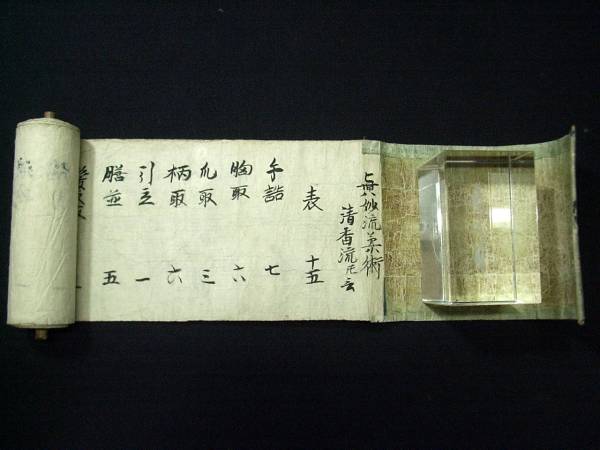 眞妙流柔術
清香流𪜈云
表 十五
手詰 七
胸取 六
取 三
柄取 六
引立 一
膳並 五